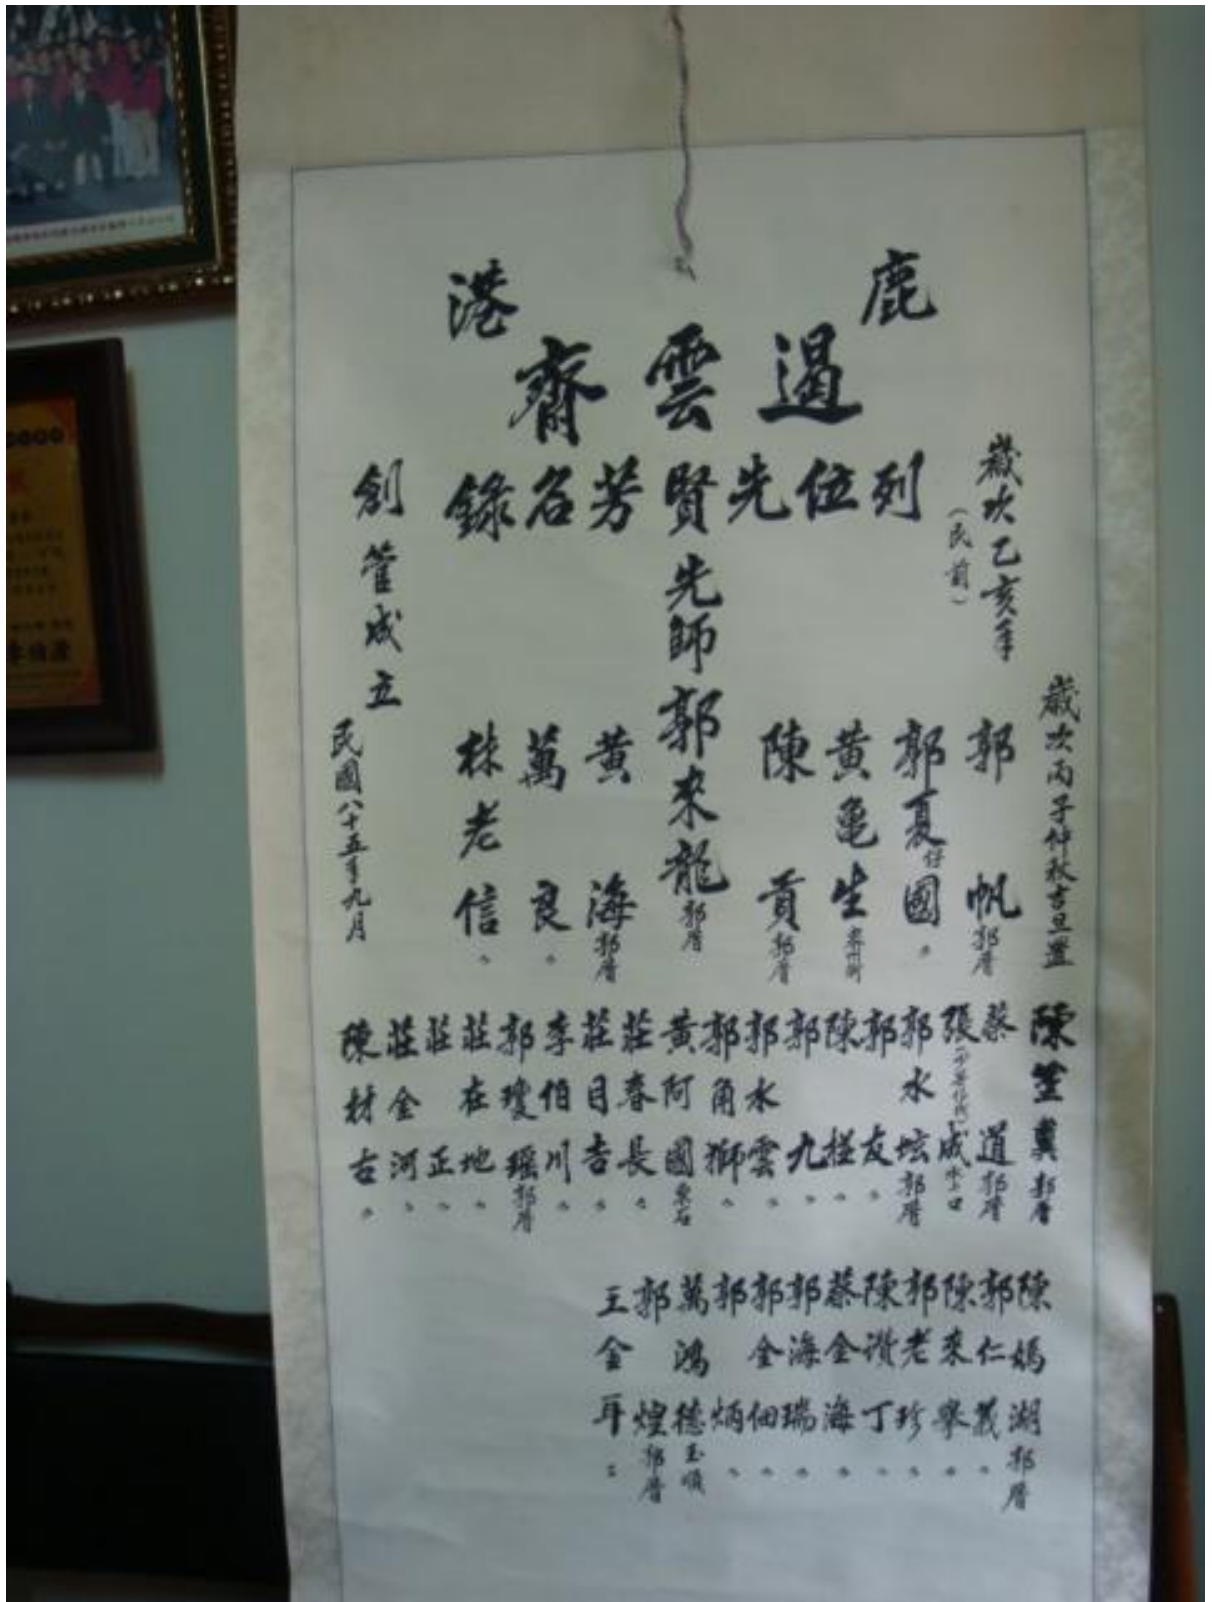 鹿港
遏雲齋
列位先賢芳名錄
歲次丙子仲秋吉旦置
歲次乙亥年
（民前）
創管成立
民國八十五年九月
先師郭來龍郭厝
郭帆郭厝
郭夏仔國〃
黃亀生
陳貢郭厝
黃海郭厝
萬良〃
林老信〃
陳笙冀郭厝
蔡道郭厝
張成
郭水坛郭厝
郭友〃
陳〃
郭九〃
郭水雲〃
郭角獅〃
黃阿國東石
莊春長〃
莊目吉〃
李伯川〃
郭瓊瑶郭厝
莊在地〃
莊正〃
莊金河〃
陳材古〃
陳媽湖郭厝
郭仁義〃
陳來舉〃
郭老珍〃
陳讚丁〃
蔡金海〃
郭海瑞〃
郭金佃〃
郭炳〃
萬鴻德玉順
郭煌郭厝
王金年